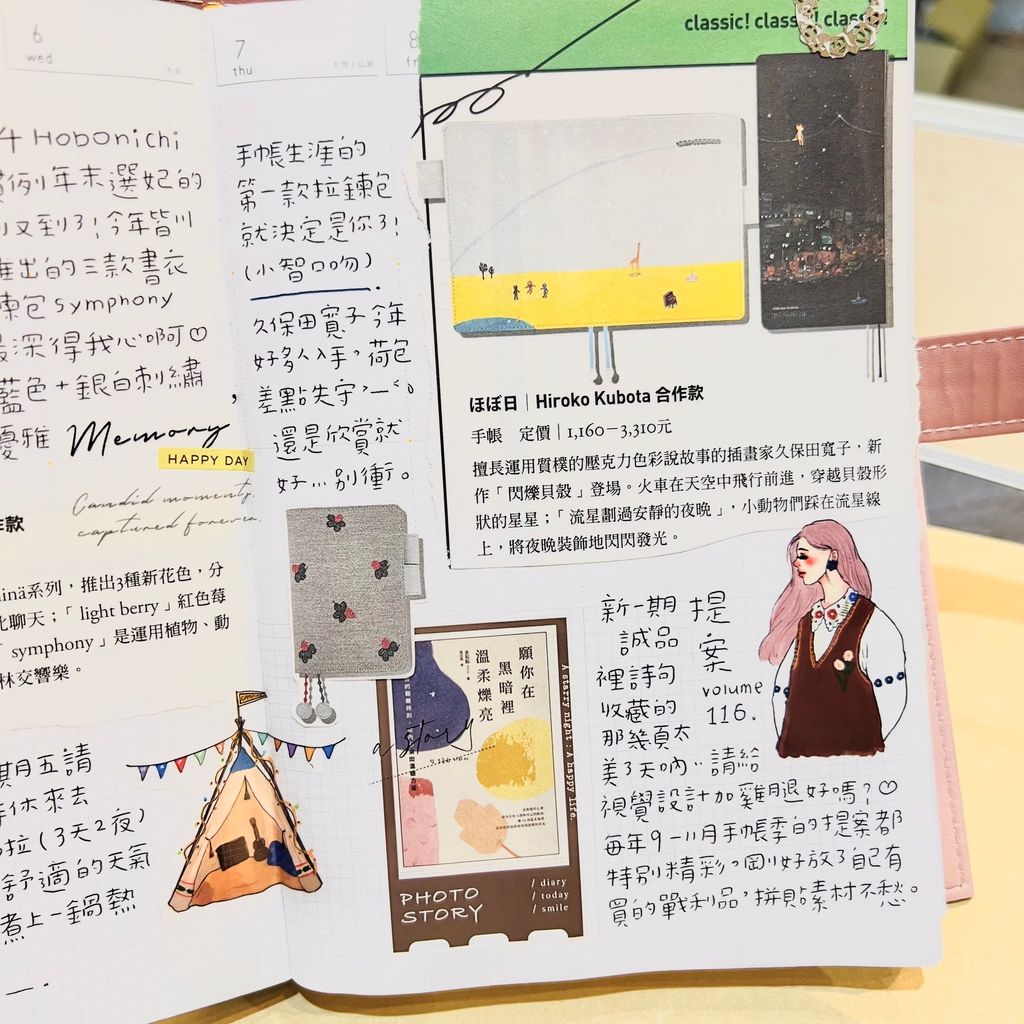 6
wed
Hobonichi
例年末選妃的
又到了!今年皆川
推出的三款書衣
symphony
深得我心啊♡
藍色+銀白刺繡
優雅
Memory
HAPPY DAY
Candid moments,
captured forever.
作款
系列,推出3種新花色,分
聊天;「light berry」紅色莓
symphony」是運用植物、動
林交響樂。
期五請
休來去
拉(3天2夜)
舒適的天氣
煮上一鍋熱
7
thu
手帳生涯的
第一款拉鍊包
就決定是你了!
(小智口吻)
久保田寬子今年
好多人入手,荷包
差點失守,
還是欣賞就
好…別衝。
8
classic! classic! classic!
ほぼ日|Hiroko Kubota 合作款
手帳 定價|1,160-3,310元
擅長運用質樸的壓克力色彩說故事的插畫家久保田寬子,新
作「閃爍貝殼」登場。火車在天空中飛行前進,穿越貝殼形
狀的星星;「流星劃過安靜的夜晚」,小動物們踩在流星線
上,將夜晚裝飾地閃閃發光。
願你在
黑暗裡
溫柔爍亮
a story
A starry night : A happy life.
PHOTO
STORY
/ diary
/ today
/ smile
提案
volume
116.
新一期
誠品
裡詩句
收藏的
那幾頁太
美了天吶…請給
視覺設計加雞腿好嗎?♡
每年9-11月手帳季的提案都
特別精彩,剛好放了自己有
買的戰利品,拼貼素材不愁。